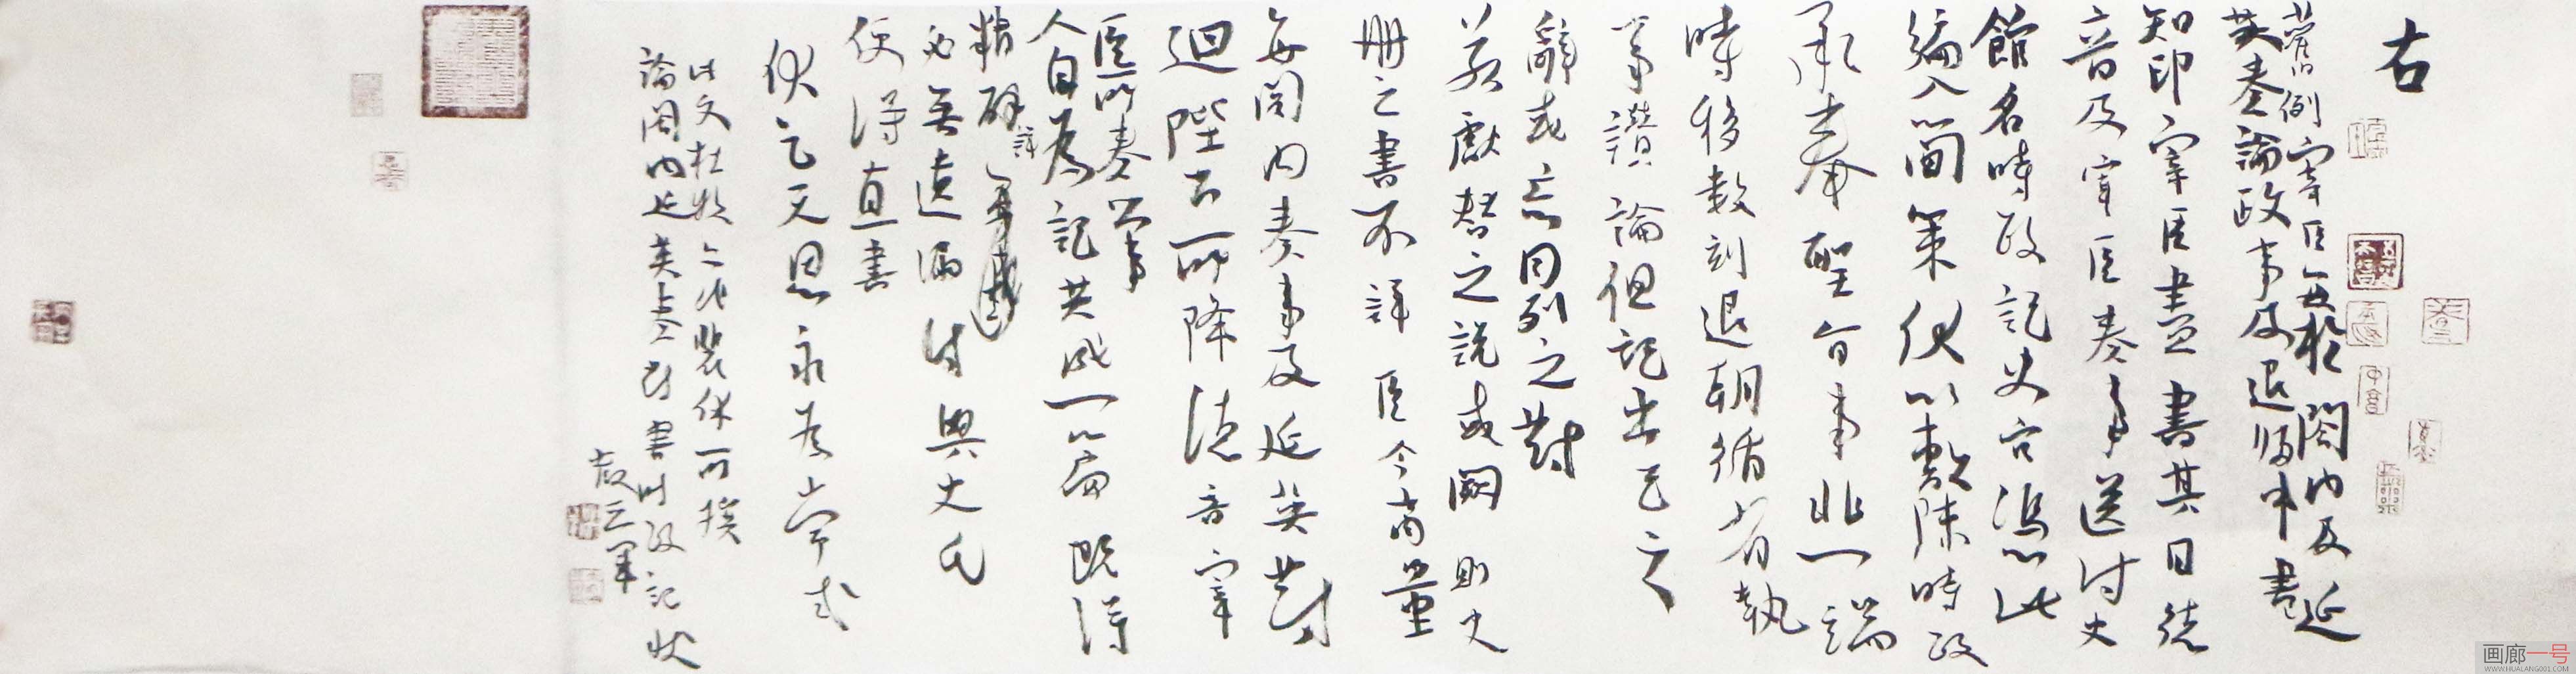 右
舊例宰臣每於閤内及延
英奏論政事及退歸中書
知印宰臣盡書其日德
音及宰臣奏事送付史
館名時政記史官憑此
編入簡策伏以數陳時政
承奉聖旨事非一端
時移數刻退朝循省執
筆讚論但記出己之
辭或忘同列之對
若獻替之說或闕則史
冊之書不詳臣今商量
每閤内奏事及延英對
迴陛下所降德音宰
臣所奏公事
人自為記共成一篇既得
精研
必無遺漏付與史氏
便得直書
伏乞天恩永為常式
此文杜牧之代裴休所撰
論閤内延英奏對書時政記狀
畫廊一号
WWW.HUALANG001.COM